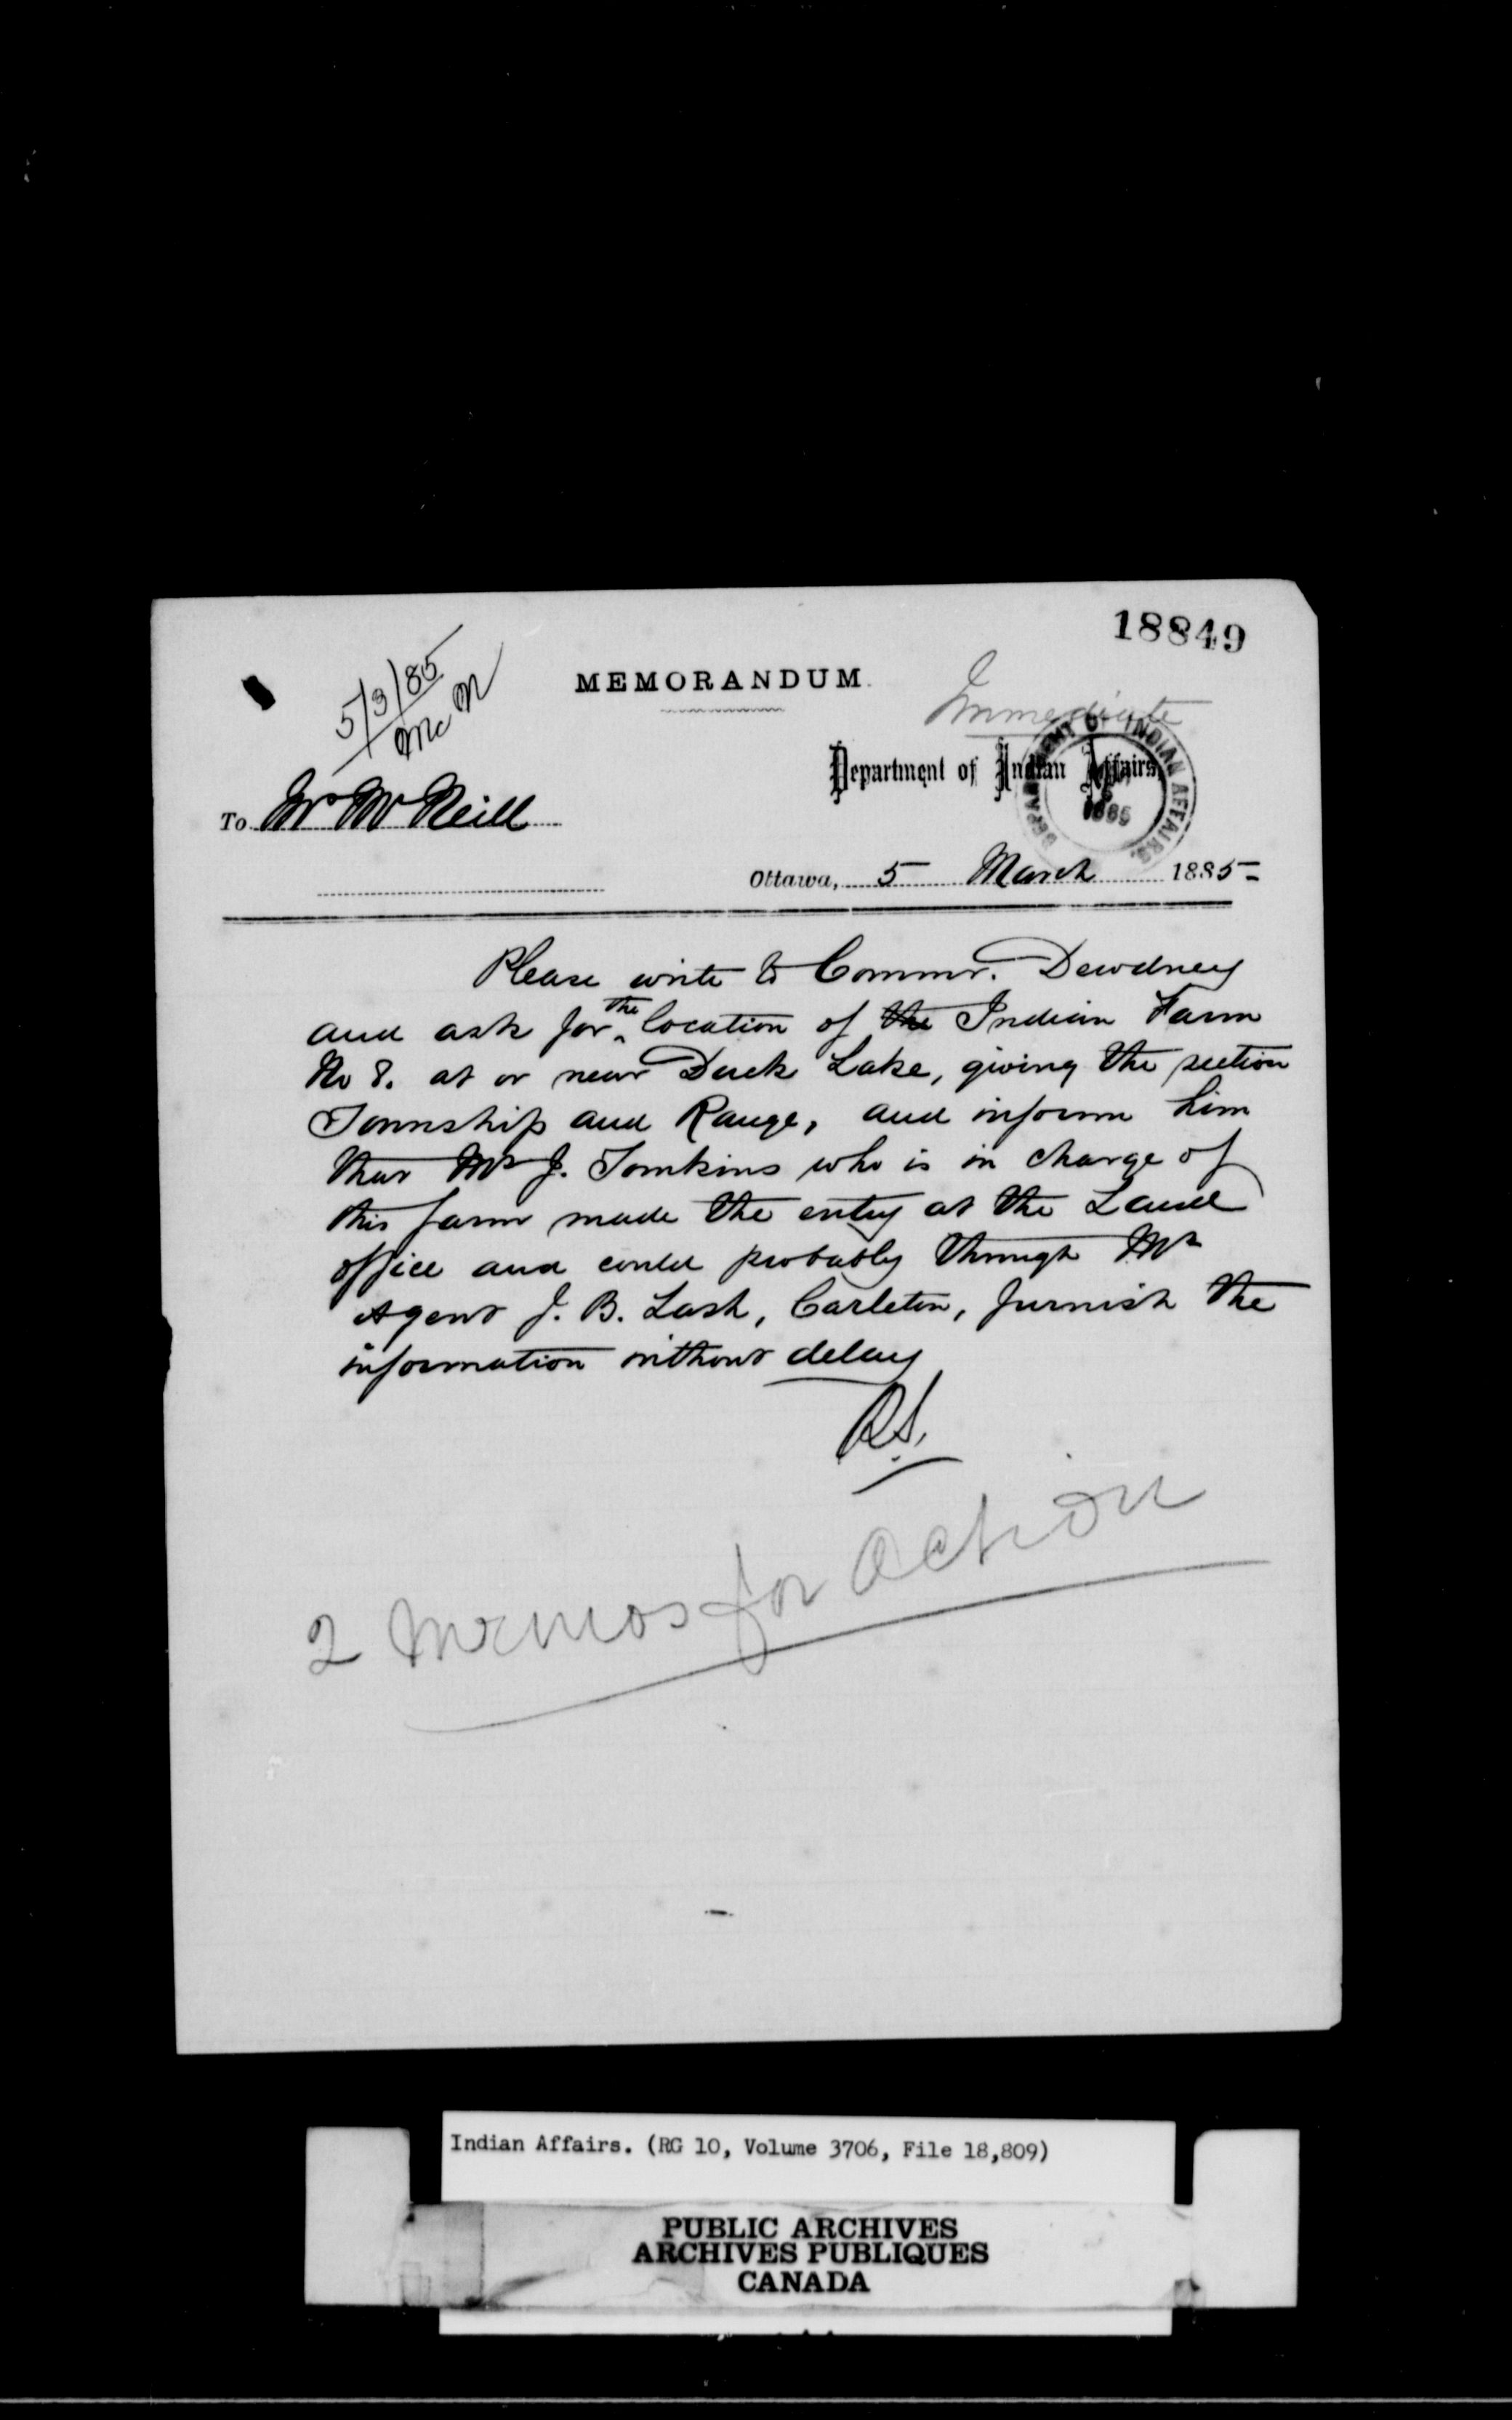 18849
5/3/85
McN
MEMORANDUM.
Immediate
Department of Indian Affairs,
DEPARTMENT OF INDIAN AFFAIRS.
1885
To Mr McNeill
Ottawa, 5 March 1885
Please write to Commr. Dewdney
and ask for the location of the Indian Farm
No 8. at or near Duck Lake, giving the section
Township and Range, and inform him
that Mr J. Tomkins who is in charge of
this farm made the entry at the Land
office and could probably through Mr
Agent J. B. Lash, Carleton, furnish the
information without delay
R.S.
2 memos for action
Indian Affairs. (RG 10, Volume 3706, File 18,809)
PUBLIC ARCHIVES
ARCHIVES PUBLIQUES
CANADA